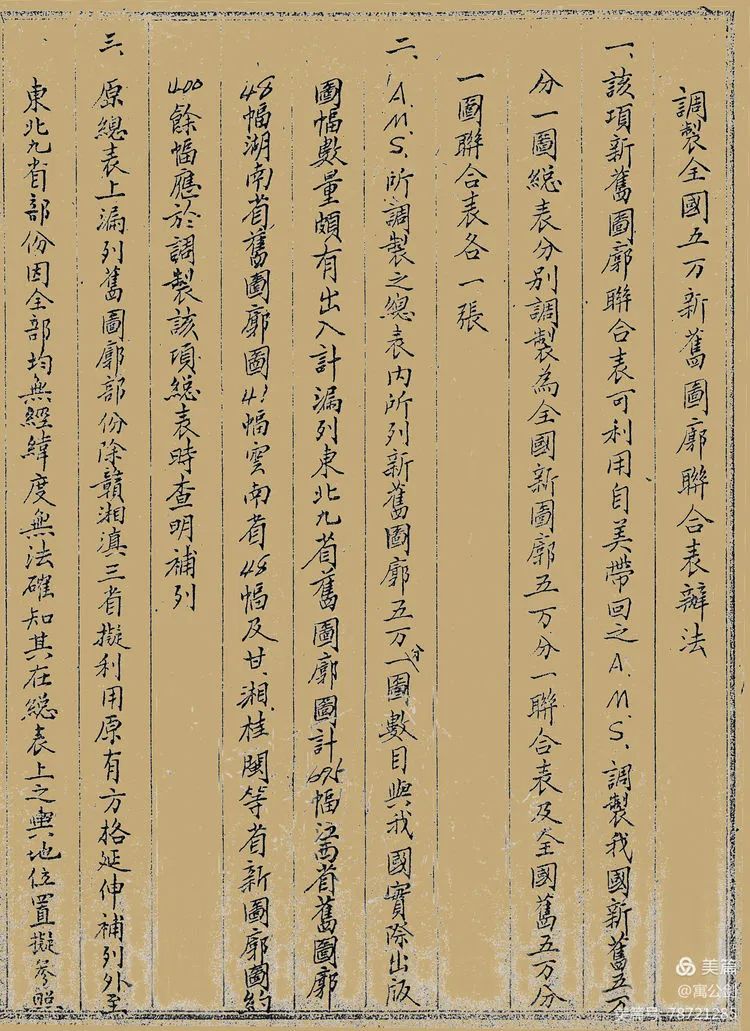 調製全國五万新舊圖廓聯合表辦法
一、該項新舊圖廓聯合表可利用自美帶回之A.M.S.調製我國新舊五万
分一圖總表分別調製為全國新圖廓五万分一聯合表及全國舊五万分
一圖聯合表各一張
二、A.M.S.所調製之總表内所列新舊圖廓五万分一圖數目與我國實際出版
圖幅數量頗有出入計漏列東北九省舊圖廓圖計695幅江西省舊圖廓
48幅湖南省舊圖廓圖41幅雲南省48幅及甘、湘、桂閩等省新圖廓圖約
400餘幅應於調製該項總表時查明補列
三、原總表上漏列舊圖廓部份除贛湘滇三省擬利用原有方格延伸補列外至
東北九省部份因全部均無經緯度無法確知其在總表上之輿地位置擬參照
美篇
@寓公